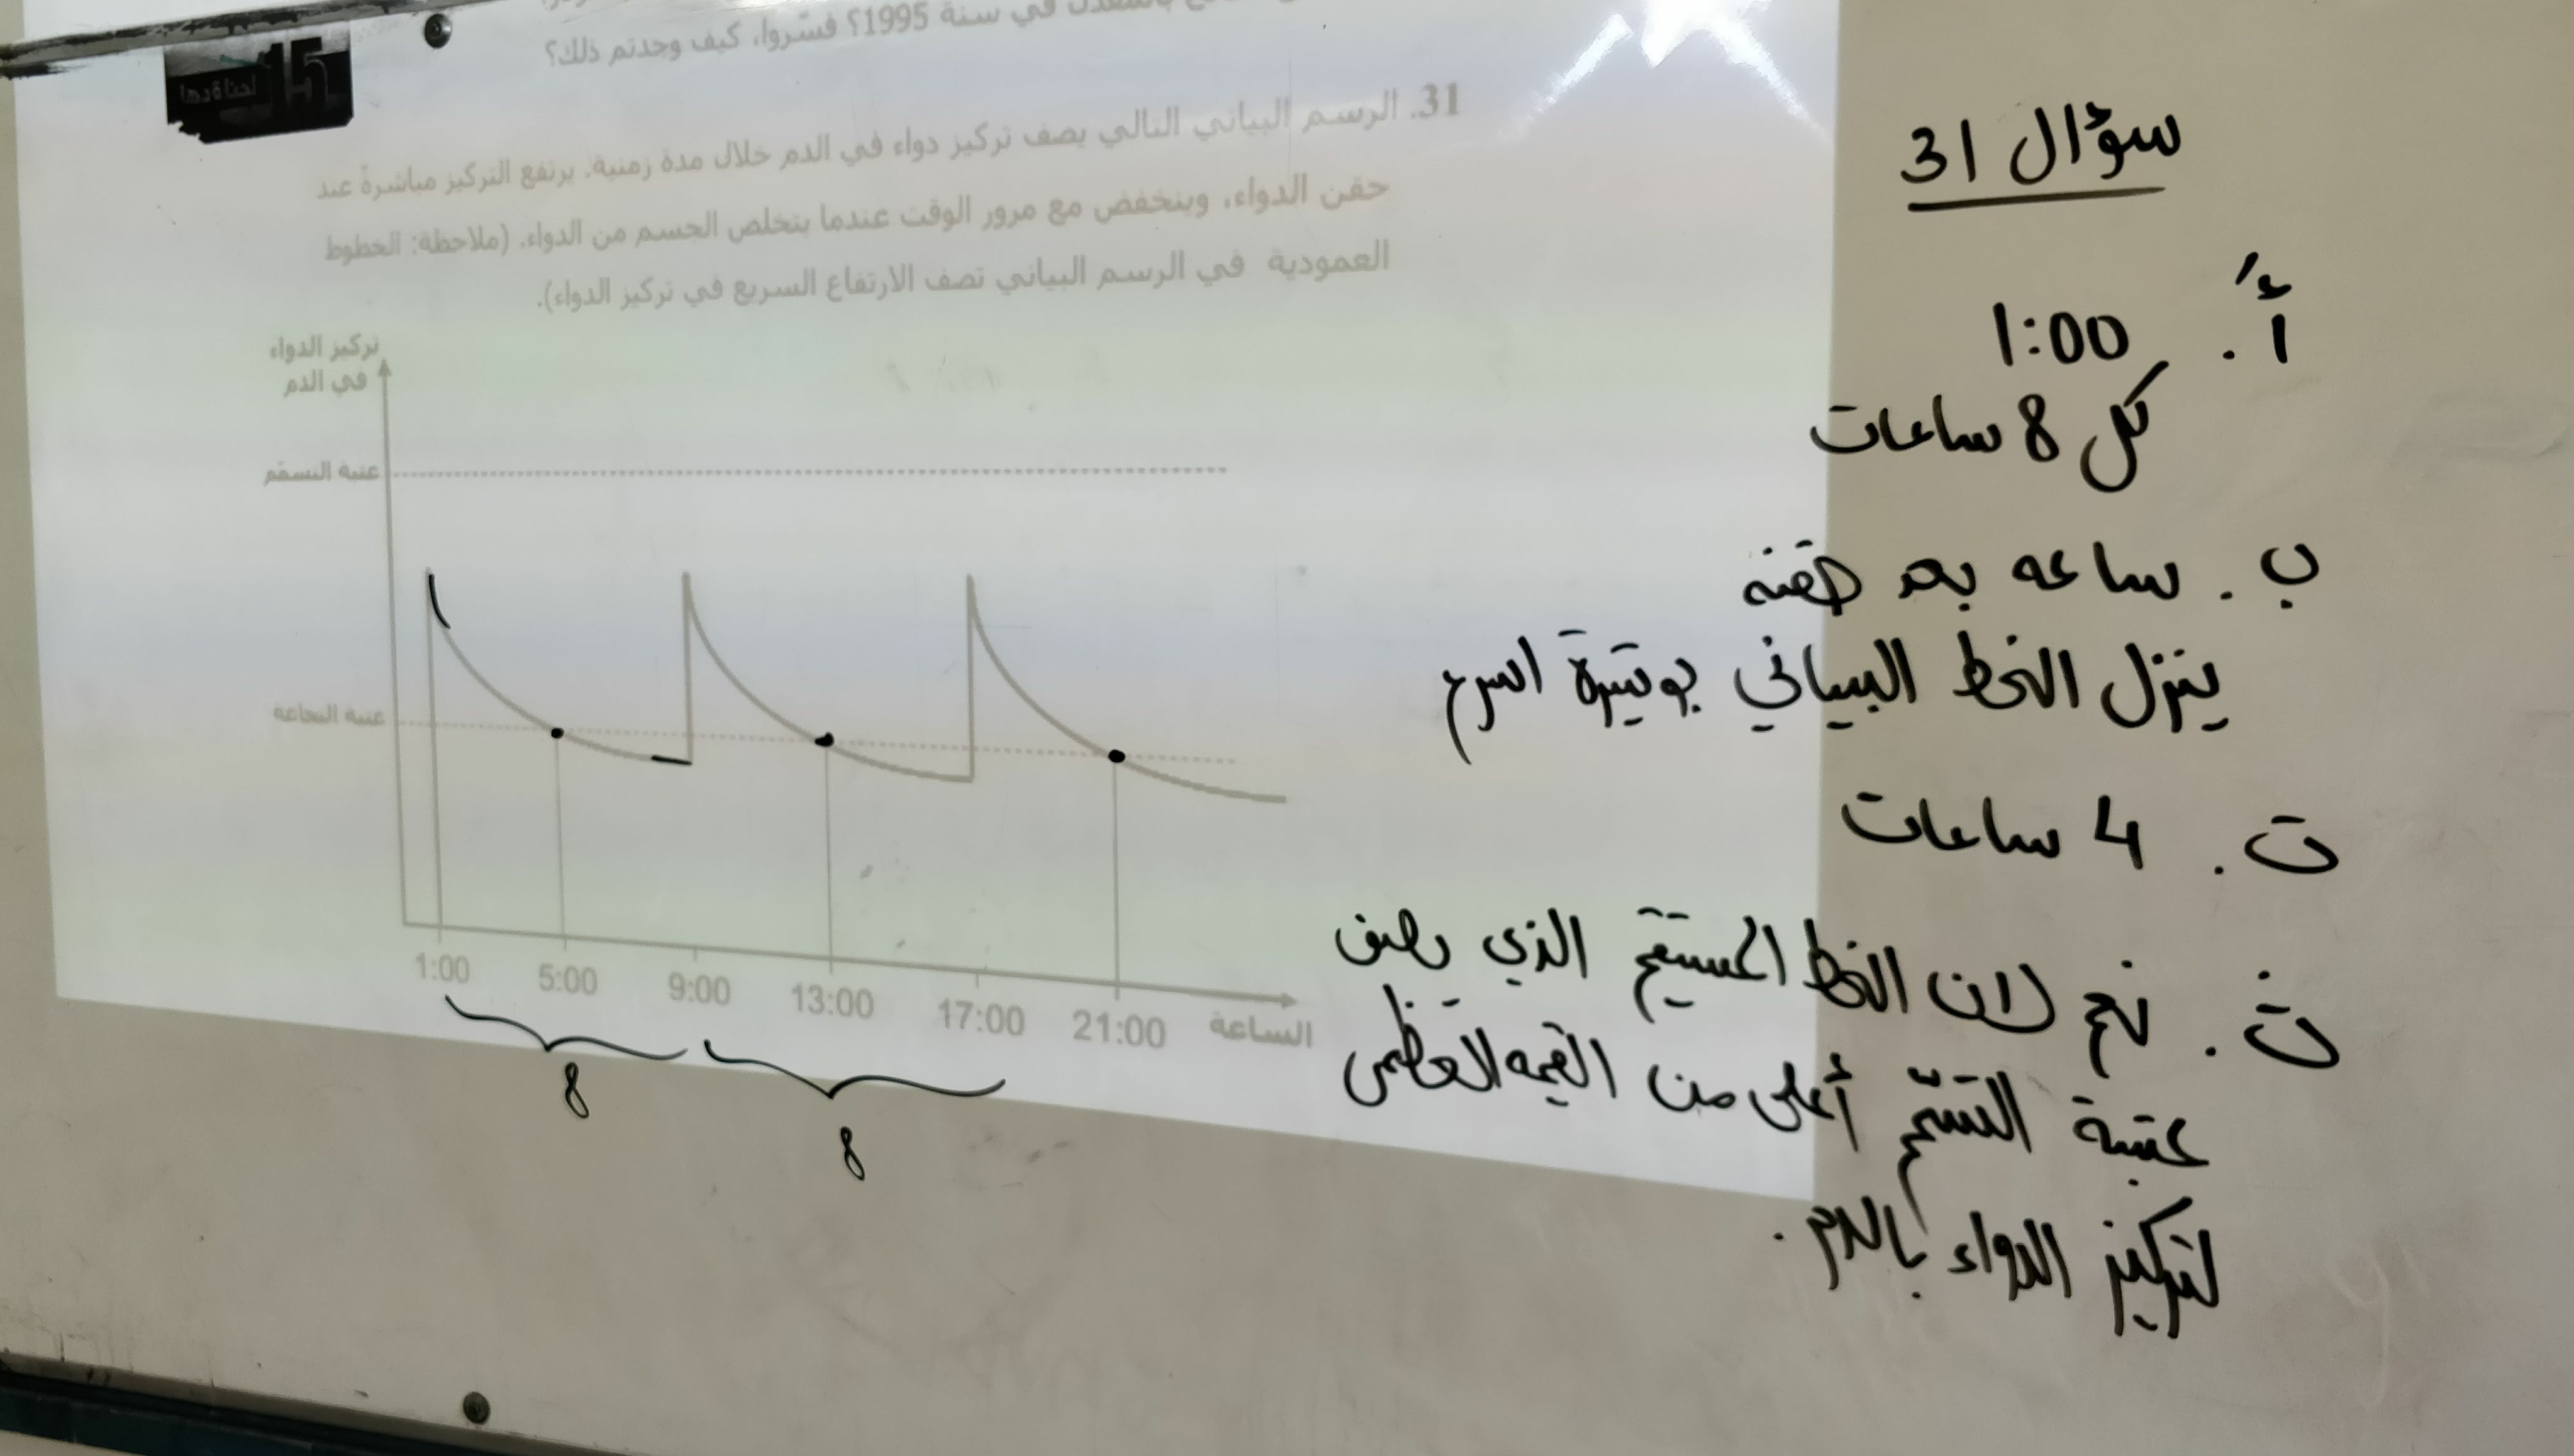 في سنة 1995؟ فسّروا، كيف وجدتم ذلك؟
15
31. الرسم البياني التالي يصف تركيز دواء في الدم خلال مدة زمنية. يرتفع التركيز مباشرةً عند
حقن الدواء، وينخفض مع مرور الوقت عندما يتخلص الجسم من الدواء. (ملاحظة: الخطوط
العمودية في الرسم البياني تصف الارتفاع السريع في تركيز الدواء).
تركيز الدواء
في الدم
عتبة التسمّم
عتبة النجاعة
1:00 5:00 9:00 13:00 17:00 21:00 الساعة
8
8
سؤال 31
أ. 1:00
كل 8 ساعات
ب. ساعه بعد حقنه
ينزل الخط البياني بوتيرة اسرع
ت. 4 ساعات
ث. نعم لان الخط المستقيم الذي يصف
عتبة التسمّم أعلى من القيمه العظمى
لتركيز الدواء بالدم.